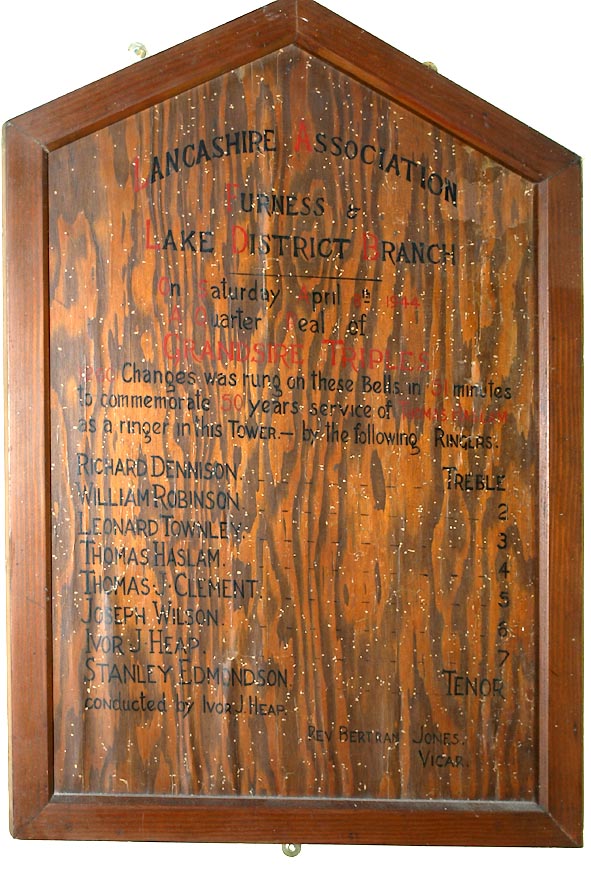 LANCASHIRE ASSOCIATION
FURNESS &
LAKE DISTRICT BRANCH
On Saturday April 8th 1944
A Quarter Peal of
GRANDSIRE TRIPLES
1260 Changes was rung on these Bells in 51 minutes
to commemorate 50 years service of
as a ringer in this TOWER.— by the following RINGERS.
RICHARD DENNISON. TREBLE
WILLIAM ROBINSON 2
LEONARD TOWNLEY. 3
THOMAS HASLAM. 4
THOMAS J CLEMENT. 5
JOSEPH WILSON. 6
IVOR J HEAP. 7
STANLEY EDMONDSON TENOR
conducted by IVOR J. HEAP.
REV BERTRAM JONES.
VICAR.